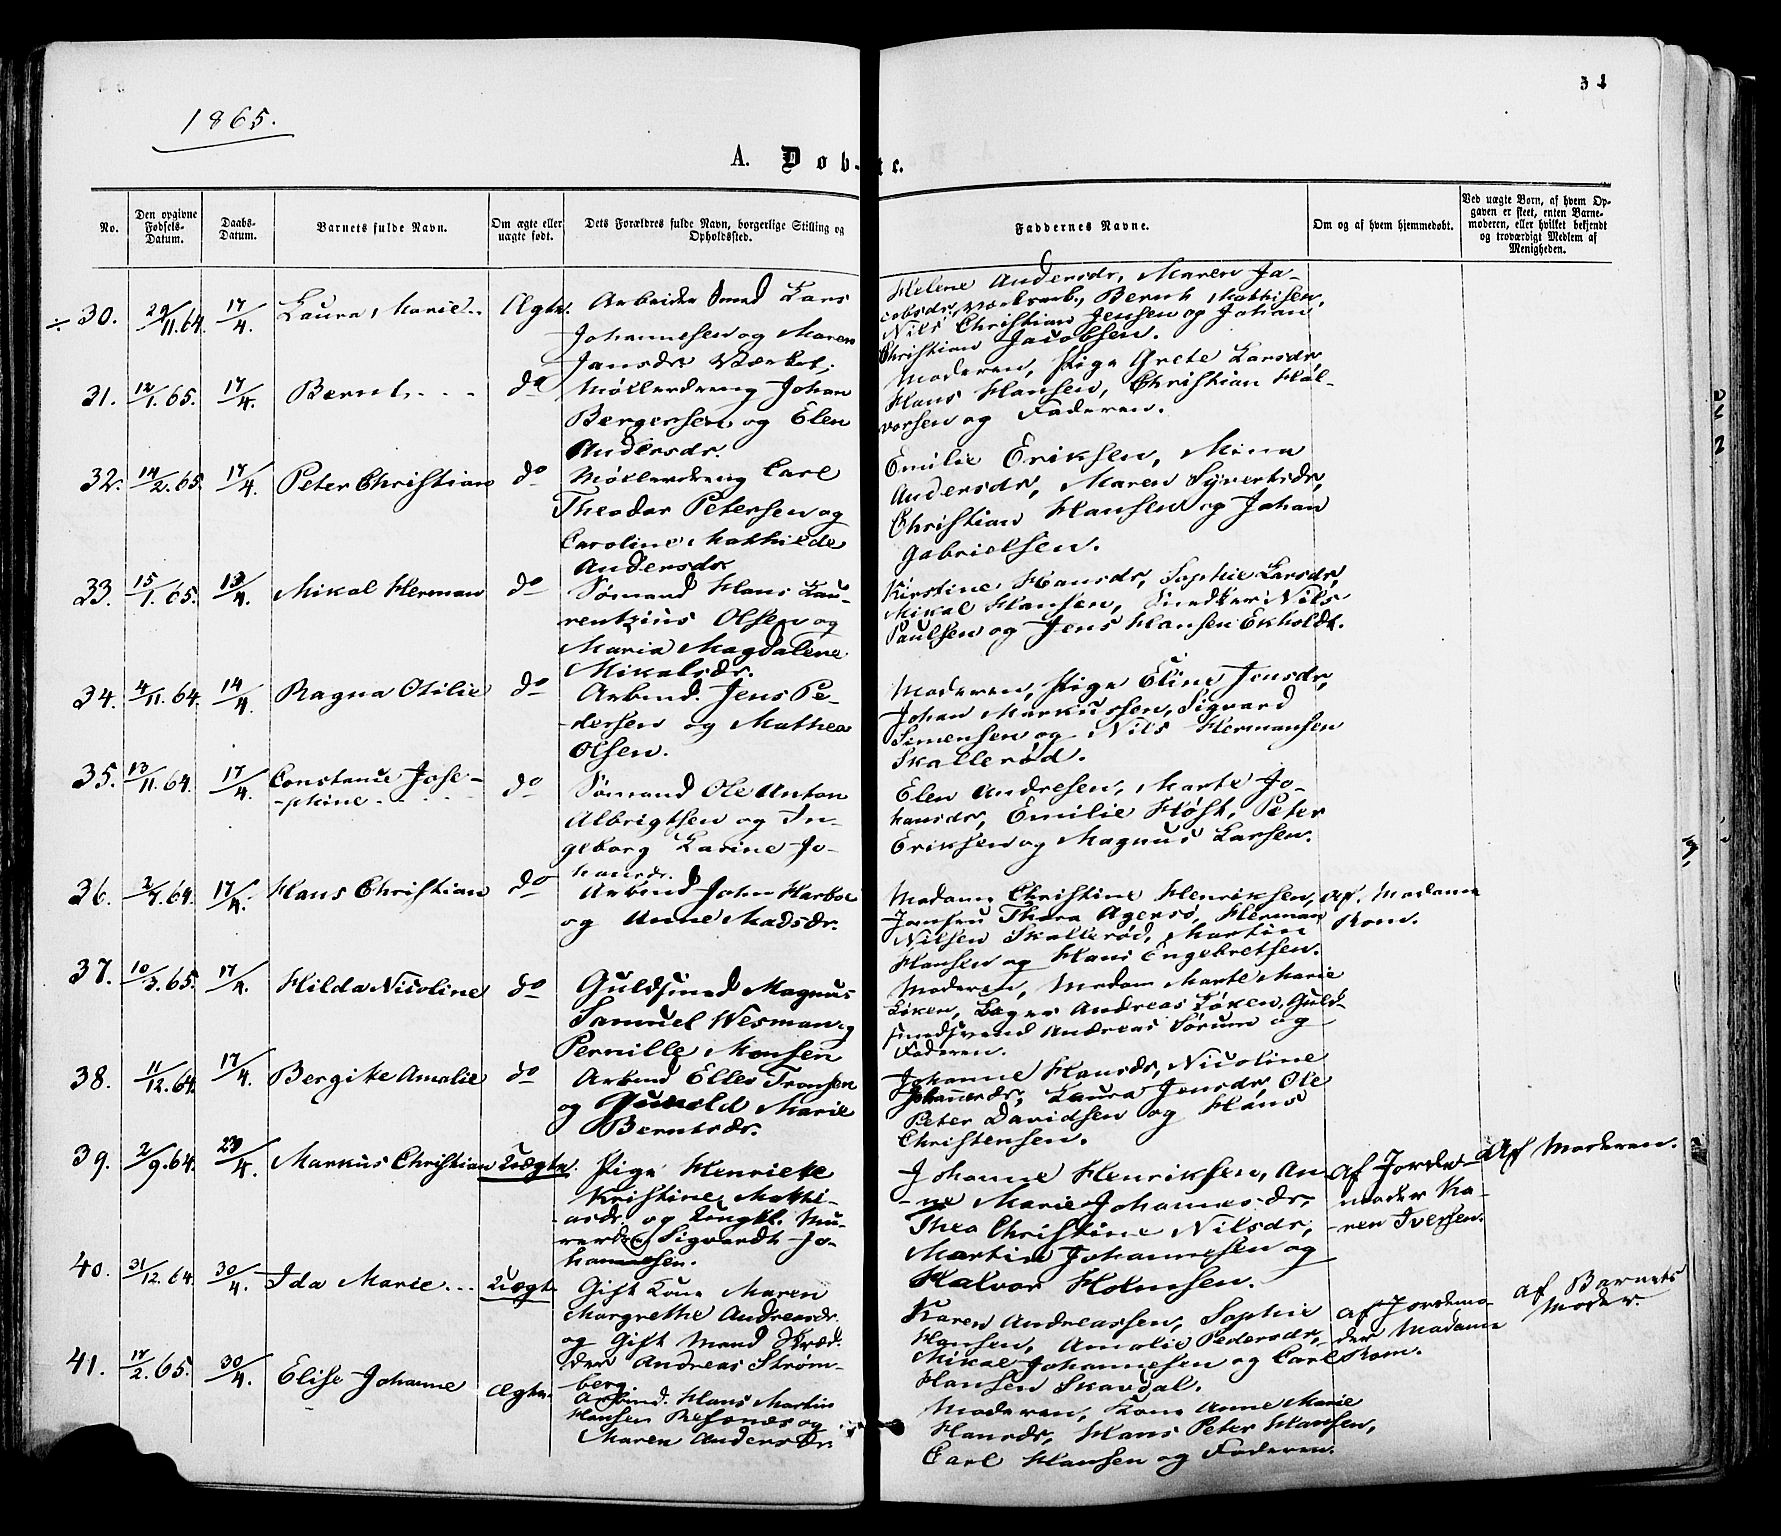 34
1865.
A. Døb- te.
No.
Den opgivne Fødsels-Datum.
Daabs-Datum.
Barnets fulde Navn.
Om ægte eller uægte født.
Dets Forældres fulde Navn, borgerlige Stilling og Opholdssted.
Faddernes Navne.
Om og af hvem hjemmedøbt.
Ved uægte Born, af hvem Opgaven er skeet, enten Barnemoderen, eller hvilket bekjendt og troværdigt Medlem af Menigheden.
÷ 30. 29/11.64. 17/4. Laura Marie.. Ægte.
Arbeider Smed Lars
Johannesen og Maren
Jansdr. Værket.
Helene Andersdr, Maren Ja-
cobsdr, Bernt Mathisen,
Nils Christian Jensen og Johan
Christian Jacobsen.
31. 12/1.65. 17/4. Bernt. . . - do
Møllerdreng Johan
Bergersen og Elen
Andersdr.
Moderen, Pige Grete Larsdr
Hans Hansen, Christian Hal-
vorsen og Faderen.
32. 14/2.65. 17/4. Peter Christian do
Møllerdreng Carl
Theodor Petersen og
Caroline Mathilde
Andersdr.
Emilie Eriksen, Mina
Andersdr, Maren Syvertsdr,
Christian Hansen og Johan
Gabrielsen.
33. 15/1.65. 13/4. Mikal Herman do
Sømand Hans Lau-
rentzius Olsen og
Maria Magdalene
Mikalsdr.
Kirstine Hansdr, Sophie Larsdr,
Mikal Hansen, Snedker Nils
Paulsen og Jens Hansen Ekholdt.
34. 4/11.64. 14/4. Ragna Otilie do
Arbmd. Jens Pe-
dersen og Mathea
Olsen.
Moderen, Pige Eline Jensdr,
Johan Markussen, Sigvard
Simensen og Nils Hermansen
Skallerød.
35. 13/11.64. 17/4. Constance Jose-
-phine - . . . do
Sømand Ole Anton
Albrigtsen og In-
geborg Karine Jo-
hansdr.
Elen Andresen, Marte Jo-
hansdr, Emilie Høst, Peter
Eriksen og Magnus Larsen.
36. 64. 17/4. Hans Christian do
Arbmd John Harboe
og Anne Madsdr.
Madam Christine Henriksen,
Jomfru Thora Agersø, Herman
Nilsen Skallerød, Martin
Hansen og Hans Engebretsen.
Af. Madame
Rom.
37. 10/3.65. 17/4. Hilda Nicoline do
Guldsmed Magnus
Samuel Wesman og
Pernille Monsen
Moderen, Madam Marte Marie
Løken, Bager Andreas Løken, Guld-
smedsvend Andreas Sørum og
Faderen.
38. 11/12.64. 17/4. Bergite Amalie do
Arbmd Elles Tronsen
og Gunild Marie
Berntsdr.
Johanne Hansdr, Nicoline
Johannesdr, Laura Jensdr, Ole
Peter Davidsen og Hans
Christensen.
39. 2/9.64. 23/4. Markus Christian Uægte.
Pige Henriette
Kristine Mathi-
asdr og Ungkl. Mu-
rer Sigvardt Jo-
hannesen.
Johanne Henriksen, An-
-ne Marie Johannesdr,
Thea Christine Nilsdr,
Martin Johannesen og
Halvor Holmsen.
af Jorde-
moder Ka-
-ren Iversen.
Af Moderen.
40. 31/12.64. 30/4. Ida Marie... Uægte
Gift Kone Maren
Margrethe Andreasdr.
og Gift Mand Skræd-
der Andreas Strøm-
berg.
Karen Andreassen, Sophie
Hansen, Amalie Pedersdr,
Mikal Johannesen og Carl
Hansen Skavdal.
af Jordemo-
der Madame
Rom.
af Barnets
Moder.
41. 17/2.65. 30/4. Elise Johanne Ægte.
Arbmd. Hans Martin
Hansen Refsnes og
Maren Andersdr.
Moderen, Kone Anne Marie
Hansdr, Hans Peter Hansen,
Carl Hansen og Faderen.